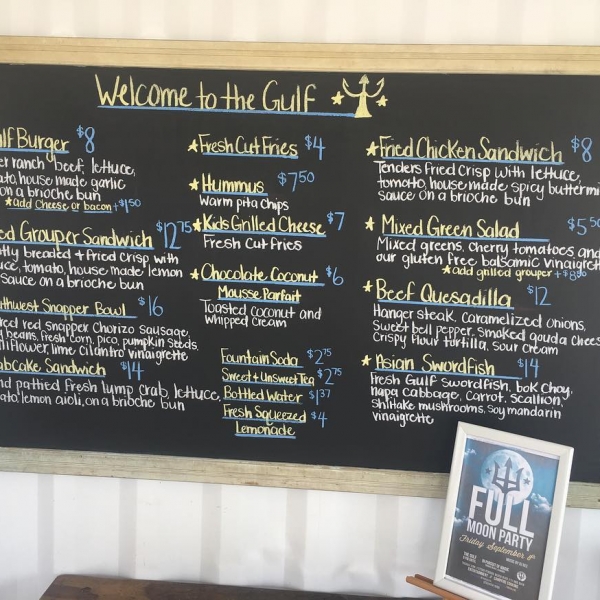 Welcome to the Gulf
lf Burger $8
er ranch beef, lettuce,
ato, house made garlic
on a brioche bun
★add Cheese or bacon +$1.50
ed Grouper Sandwich $12.75
tly breaded & fried crisp with
uce, tomato, house made lemon
sauce on a brioche bun
thwest Snapper Bowl $16
red red snapper Chorizo Sausage,
beans, fresh corn, pico, pumpkin seeds,
liflower, lime cilantro vinaigrette
abcake Sandwich $14
nd pattied fresh lump crab, lettuce,
ato, lemon aioli, on a brioche bun
★Fresh Cut Fries $4
★Hummus $7.50
Warm pita chips
★Kids Grilled Cheese $7
Fresh Cut fries
★Chocolate Coconut $6
Mousse Parfait
Toasted coconut and
whipped cream
Fountain Soda $2.75
Sweet & UnSweet Tea $2.75
Bottled Water $1.37
Fresh Squeezed $4
Lemonade
★Fried Chicken Sandwich $8
Tenders fried crisp with lettuce,
tomato, house made spicy buttermi
sauce on a brioche bun
★Mixed Green Salad $5.50
Mixed greens, cherry tomatoes and
our gluten free balsamic vinaigrette
★add grilled grouper +$8.50
★Beef Quesadilla $12
Hanger steak, caramelized onions,
Sweet bell pepper, smoked gouda chees
Crispy flour tortilla, sour cream
★Asian Swordfish $14
Fresh Gulf Swordfish, bok choy,
napa cabbage, carrot, scallion,
shiitake mushrooms, soy mandarin
vinaigrette
FULL
MOON PARTY
Friday September 8th